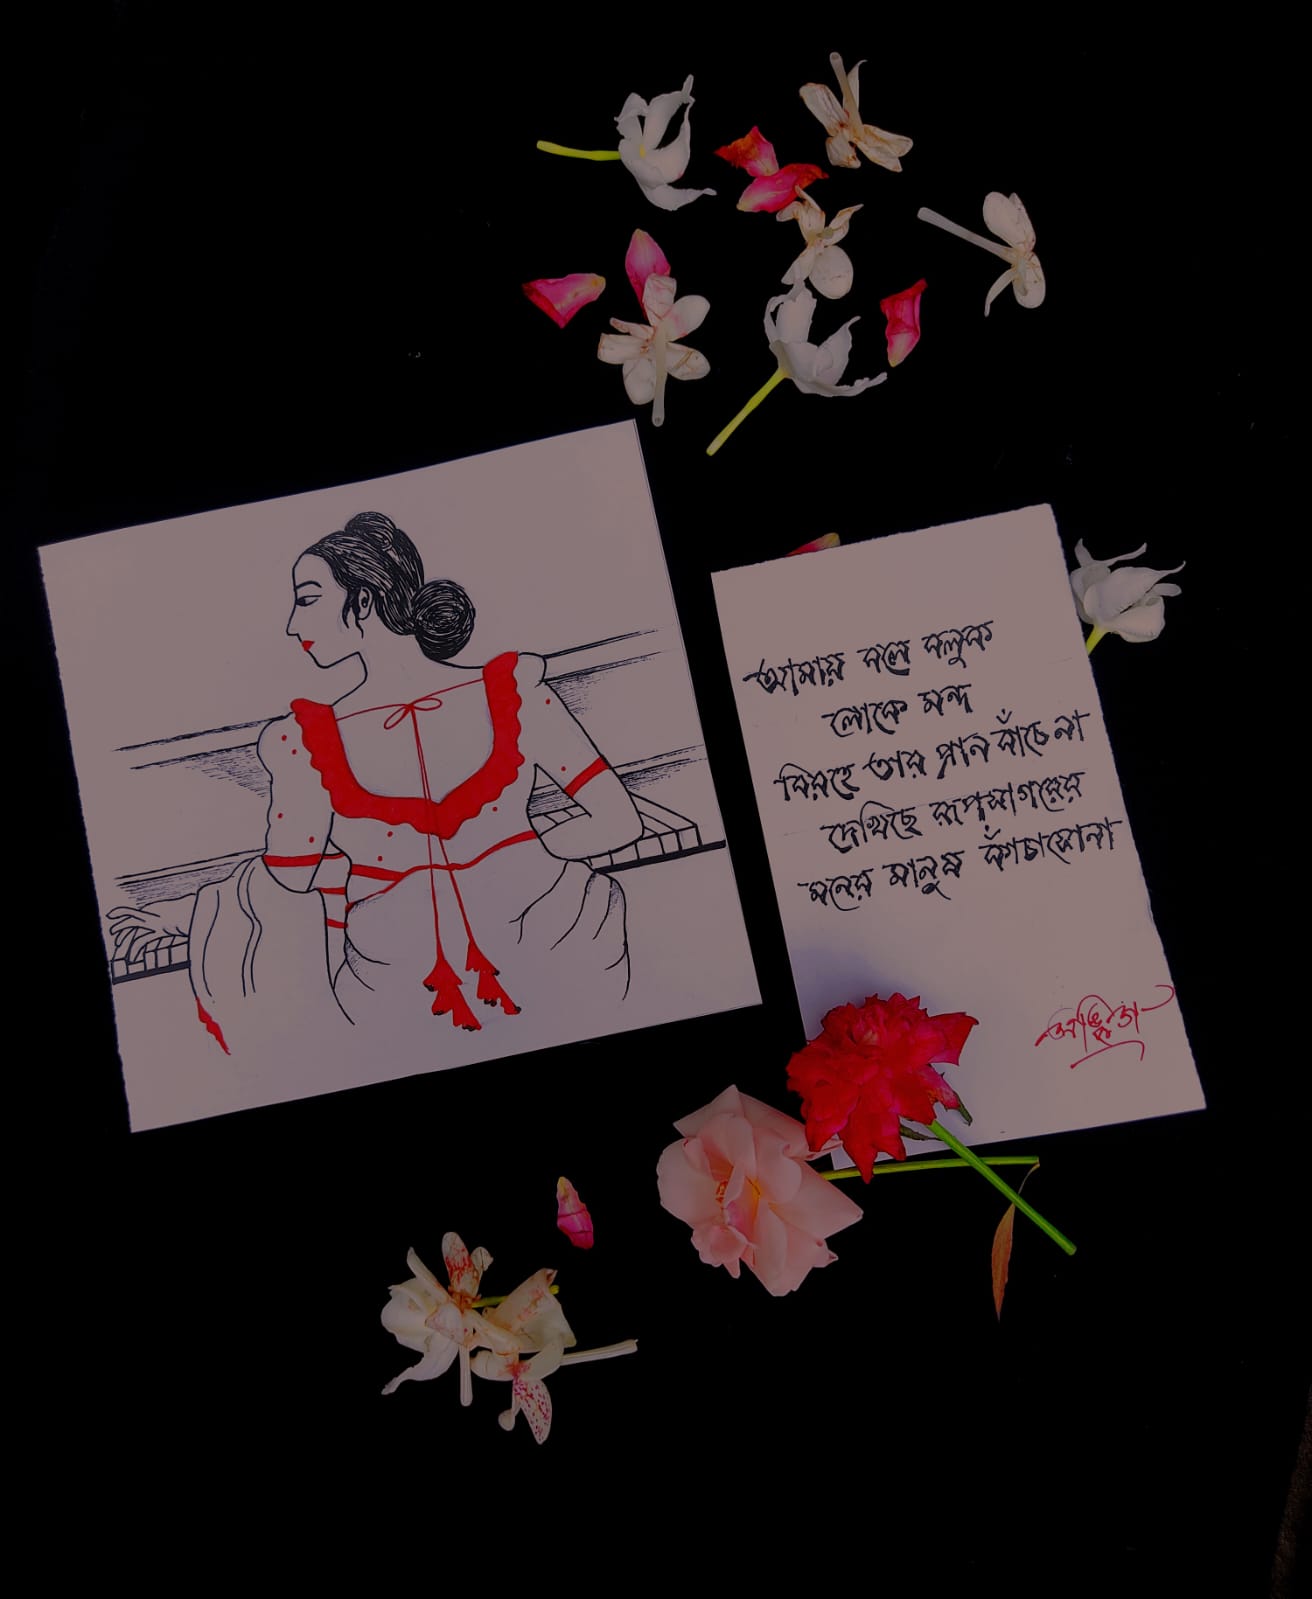 আমায় বলে বলুক
লোকে মন্দ
বিরহে তার প্রান বাঁচে না
দেখিছে রূপসাগরের
মনের মানুষ কাঁচাসোনা